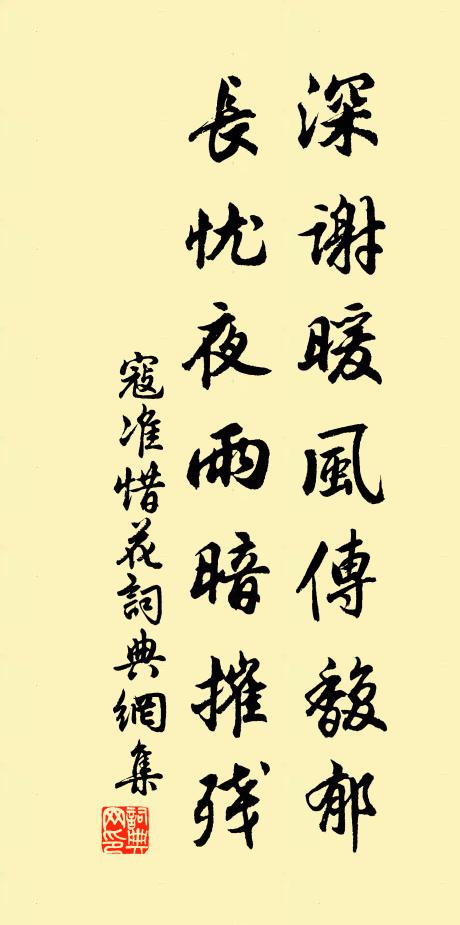 深謝暖風傳馥郁
長忧夜雨暗摧残
寇准惜花詞典網集
詞典网印